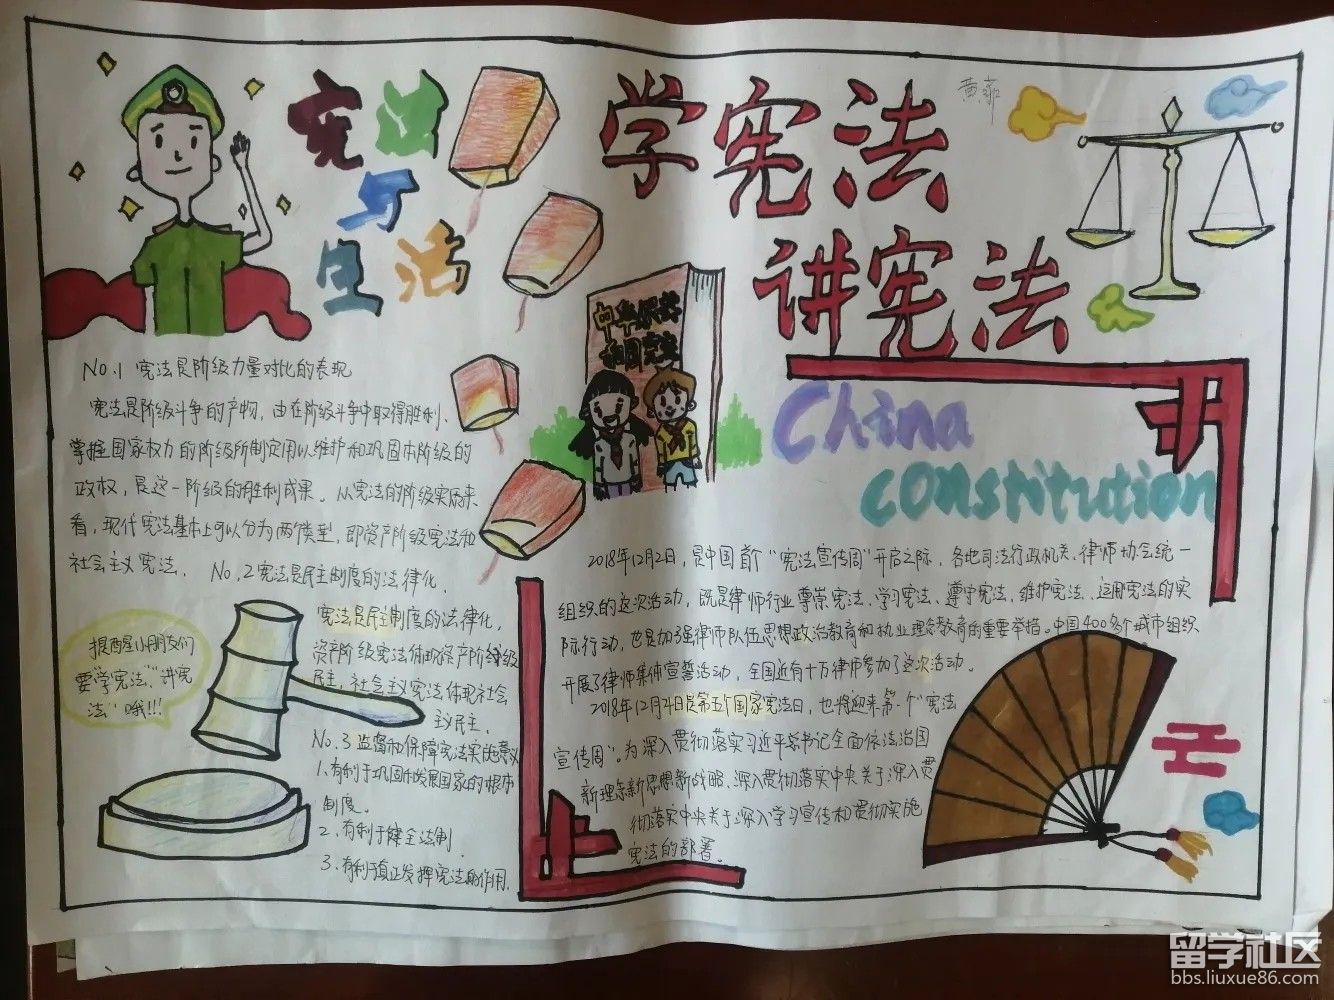 宪法
与
生活
学宪法
讲宪法
黄菲
中华人民共
和国宪法
China
constitution
No.1 宪法是阶级力量对比的表现
宪法是阶级斗争的产物,由在阶级斗争中取得胜利、
掌握国家权力的阶级所制定用以维护和巩固本阶级的
政权,是这一阶级的胜利成果。从宪法的阶级实质来
看,现代宪法基本上可以分为两个类型,即资产阶级宪法和
社会主义宪法.
No.2宪法是民主制度的法律化.
宪法是民主制度的法律化,
资产阶级宪法体现资产阶级
民主,社会主义宪法体现社会
主义民主.
No.3 监督和保障宪法实施意义
1.有利于巩固和发展国家的根本
制度。
2、有利于健全法制.
3、有利于真正发挥宪法的作用.
提醒小朋友们
要“学宪法”“讲宪
法”哦!!!
2018年12月2日,是中国首个“宪法宣传周”开启之际,各地司法行政机关、律师协会统一
组织的这次活动,既是律师行业尊崇宪法、学习宪法、遵守宪法、维护宪法、运用宪法的实
际行动,也是加强律师队伍思想政治教育和执业理念教育的重要举措。中国400多个城市组织
开展了律师集体宣誓活动,全国近有十万律师参加了这次活动。
2018年12月4日是第五个国家宪法日,也将迎来第一个“宪法
宣传周”。为深入贯彻落实习近平总书记全面依法治国
新理念新思想新战略、深入贯彻落实中央关于深入贯
彻落实中央关于深入学习宣传和贯彻实施
宪法的部署。
留学社区
bbs.liuxue86.com